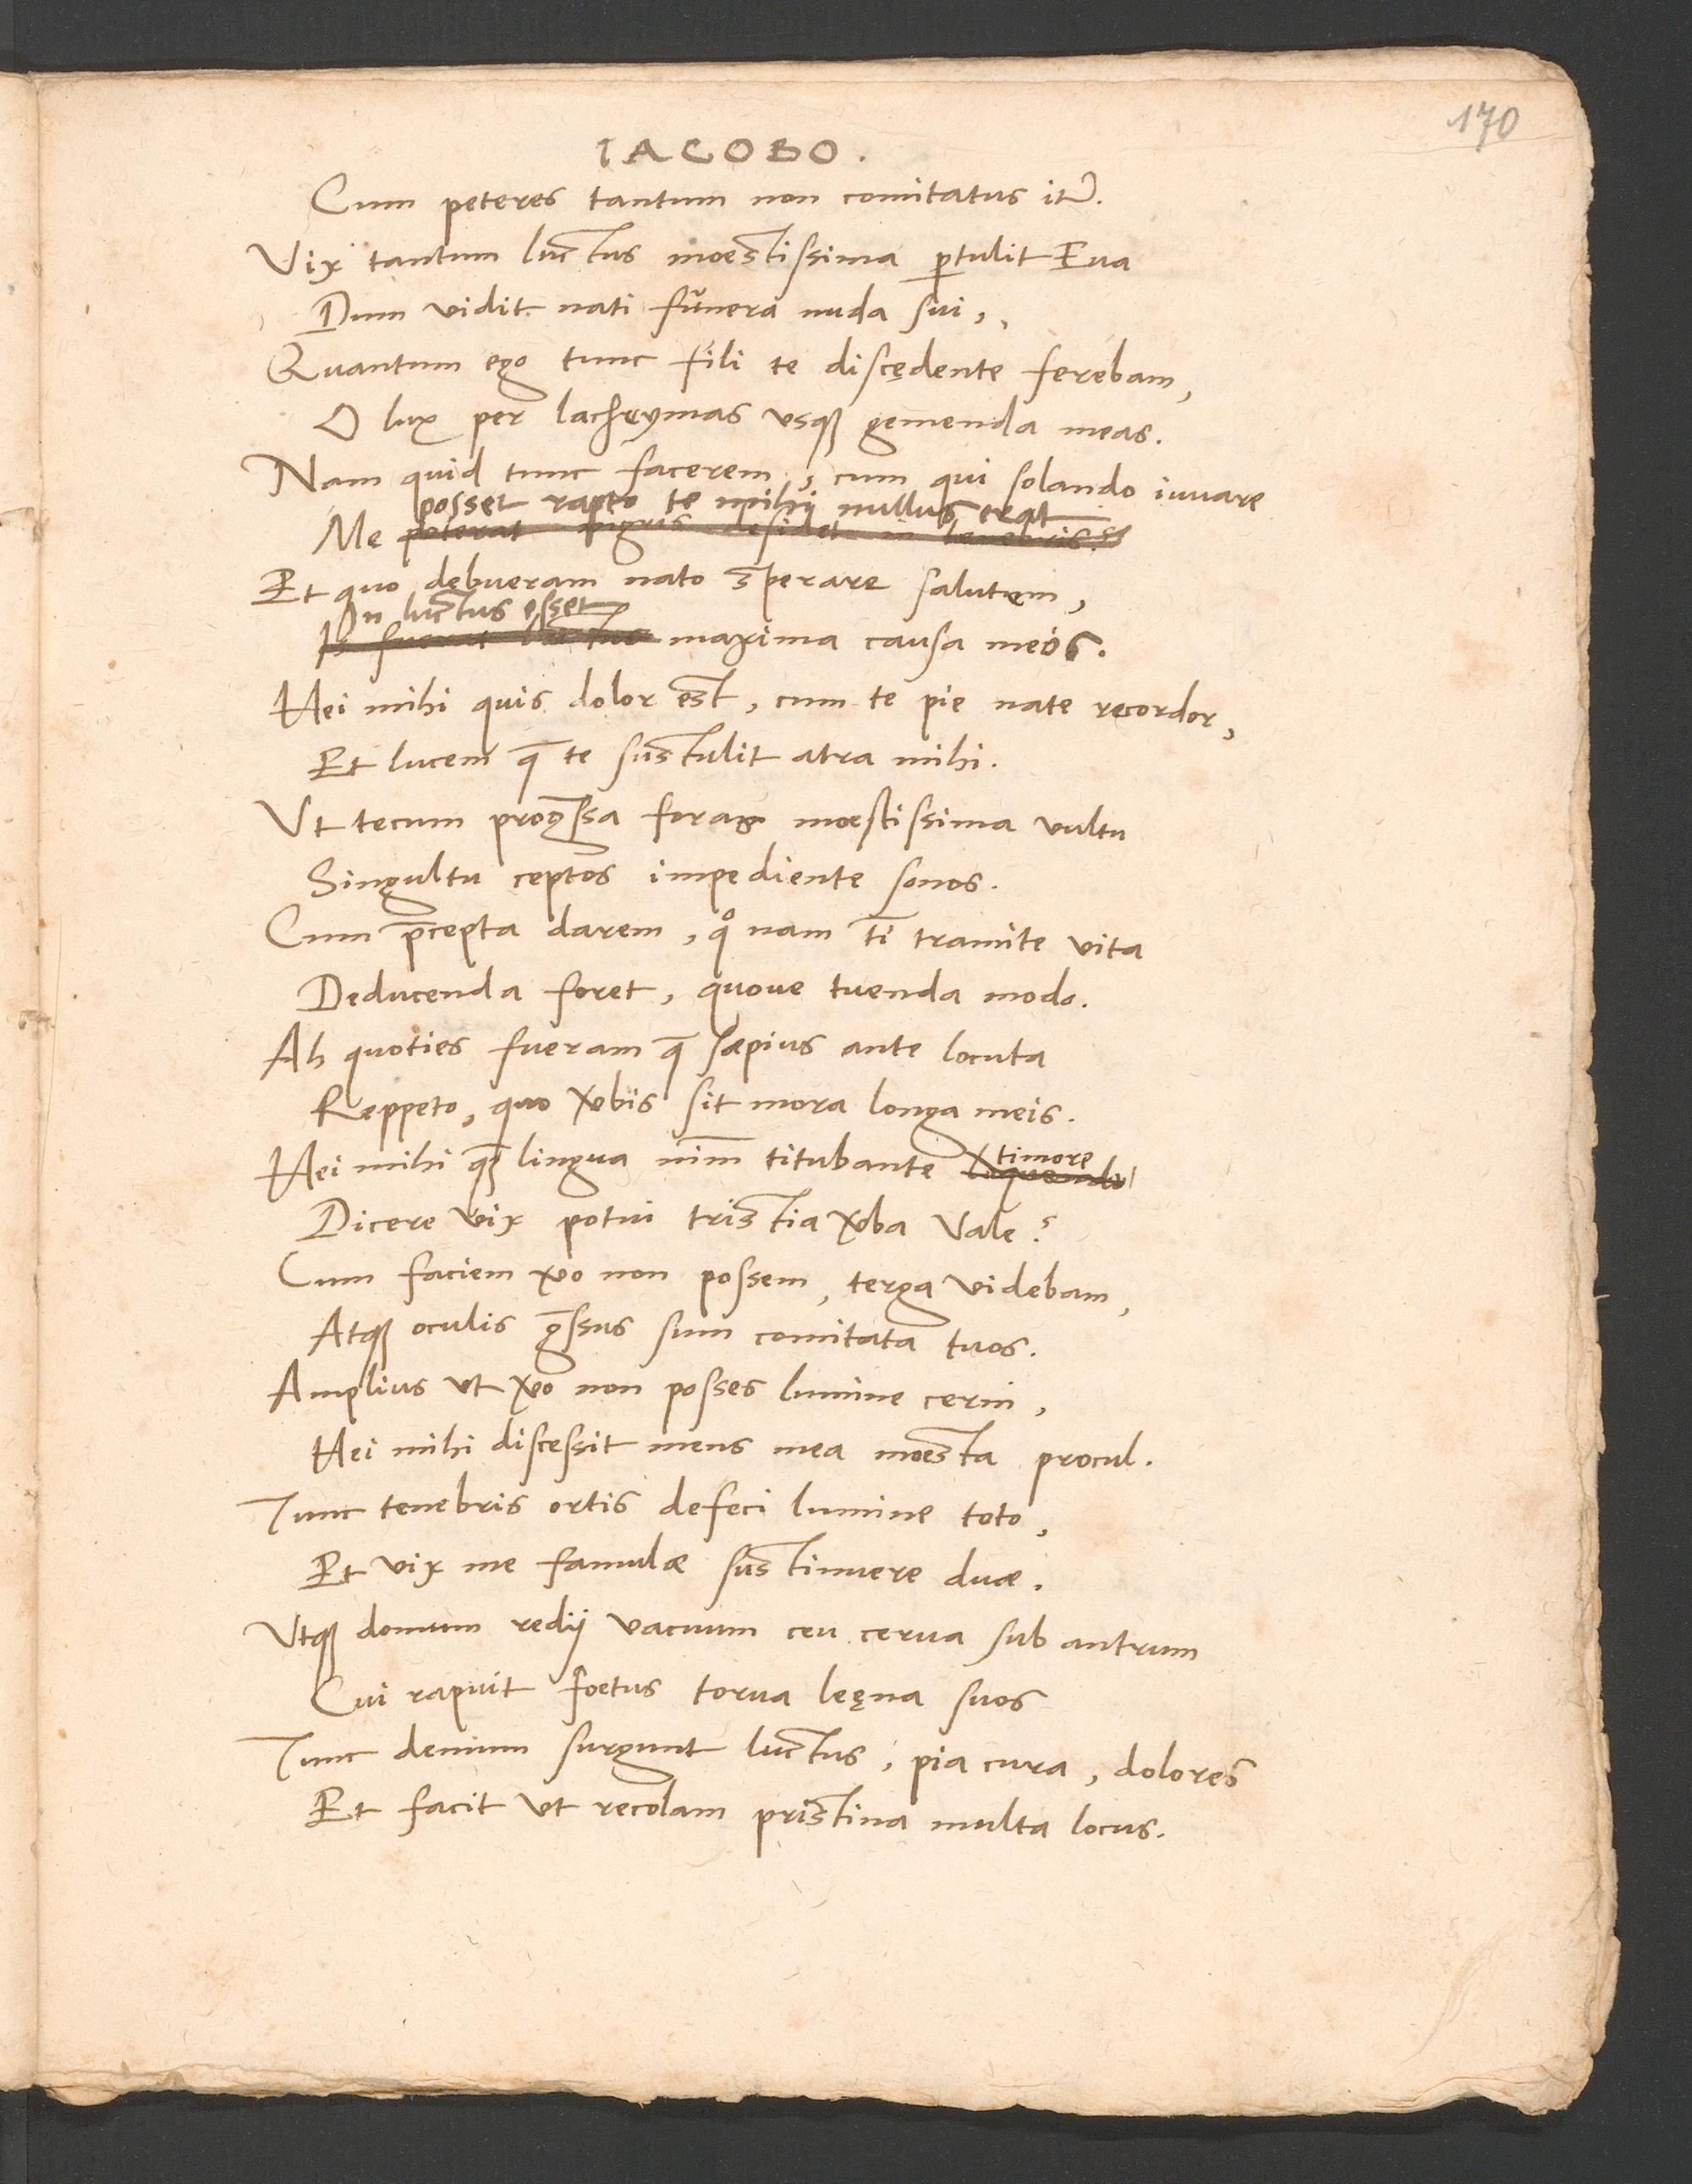 170
IACOBO.
Cum peteres tantum non comitatus iter.
Vix tantum luctus moestissima ꝑtulit Eua
Dum vidit nati fŭnera nuda sui,
Quantum ego tunc fili te discędente ferebam,
O lux per lachrymas vsqꝫ gemenda meas.
Nam quid tunc facerem, cum qui solando iuuare
posset rapto te mihi nullus erat
Me poterat nigris desidet in tenebris?
Et quo debueram nato sperare salutem,
In luctus esset
Is fuerat luctus maxima causa meos.
Hei mihi quis dolor est, cum te pie nate recordor,
Et lucem q̄ te sustulit atra mihi.
Vt tecum proḡssa foras moestissima vultu
Singultu ceptos impediente sonos.
Cum p̄cepta darem, qͦ nam t̄i tramite vita
Deducenda foret, quoue tuenda modo.
Ah quoties fueram q̄ sæpius ante locuta
Reppeto, quo v̄bis sit mora longa meis.
Hei mihi qꝫ lingua nim̄ titubante timore
loquendo
Dicere vix potui tristia v̄ba Vale?
Cum faciem v̄o non possem, terga videbam,
Atqꝫ oculis ḡssus sum comitata tuos.
Amplius vt v̄o non posses lumine cerni,
Hei mihi discessit mens mea moesta procul.
Tunc tenebris ortis defeci lumine toto,
Et vix me famulæ sustinuere duæ.
Vtqꝫ domum redij vacuum ceu cerua sub antrum
Cui rapuit foetus torua leęna suos
Tunc demum surgunt luctus, pia cura, dolores
Et facit vt recolam pristina multa locus.